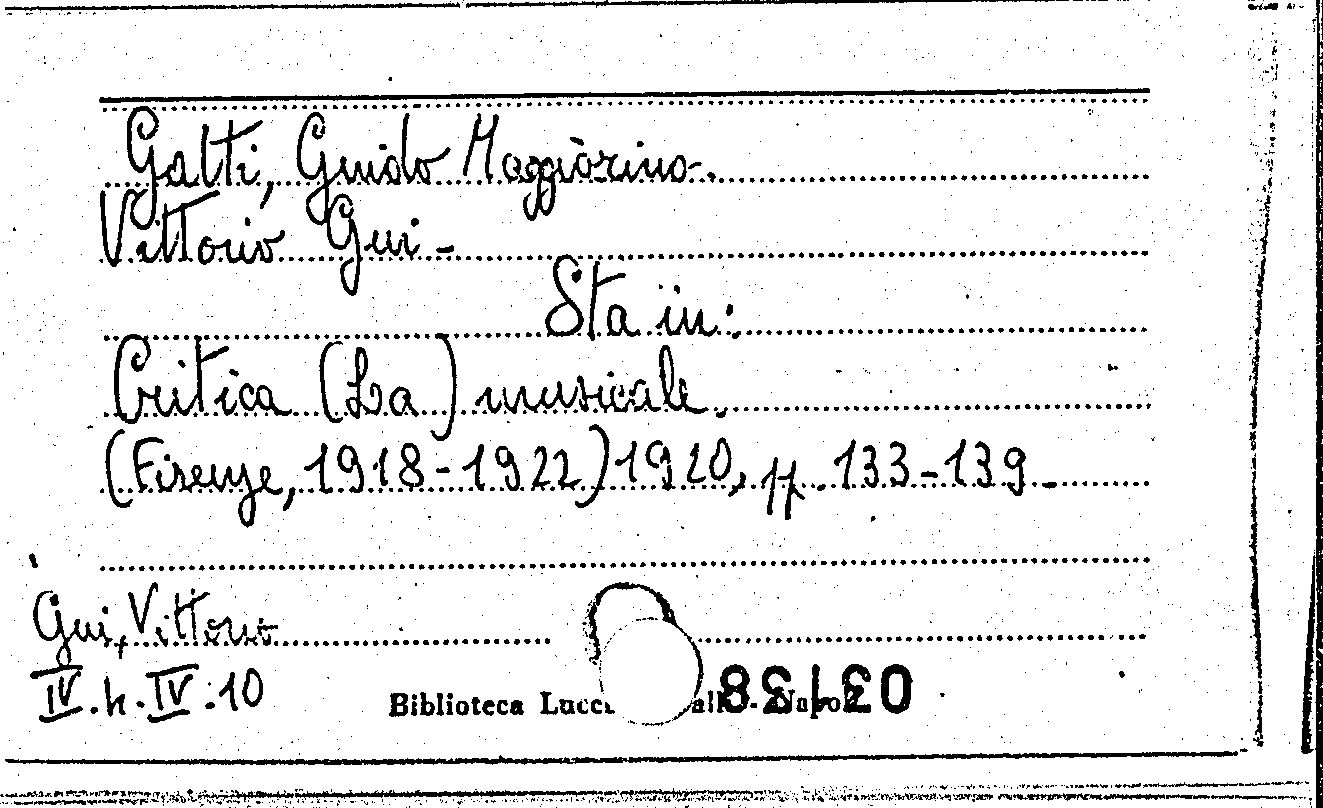 Gatti, Guido Maggiorino.
Vittorio Gui -
Sta in:
Critica (La) musicale.
(Firenze, 1918-1922) 1920, pp. 133-139 -
Gui, Vittorio
IV. h. IV. 10
Biblioteca